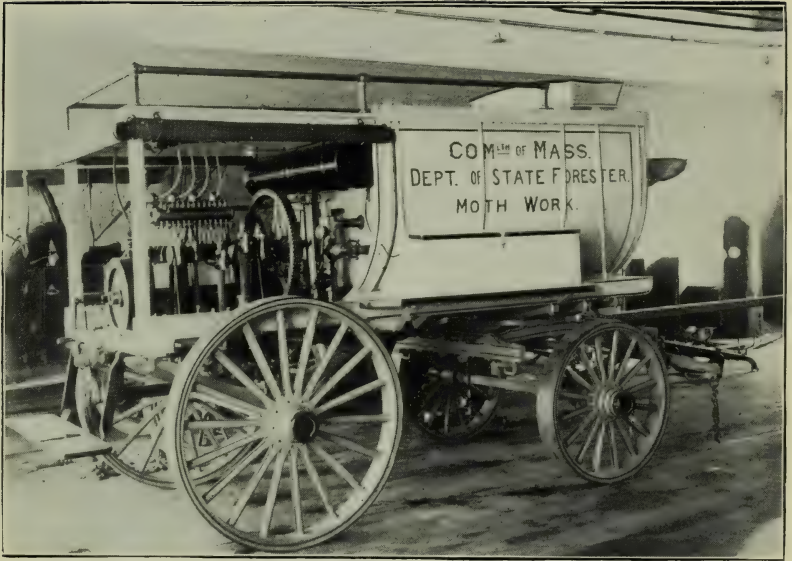 COMLTH OF MASS.
DEPT. OF STATE FORESTER.
MOTH WORK.